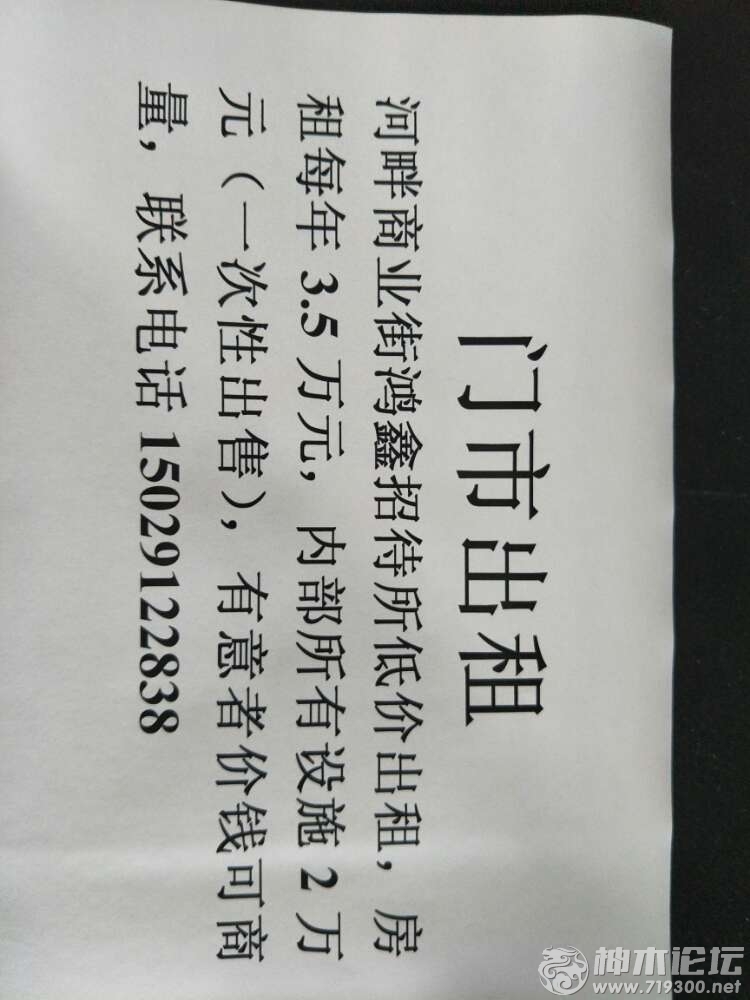 门市出租
河畔商业街鸿鑫招待所低价出租，房
租每年 3.5 万元，内部所有设施 2 万
元（一次性出售），有意者价钱可商
量，联系电话 15029122838
神木论坛
www.719300.net